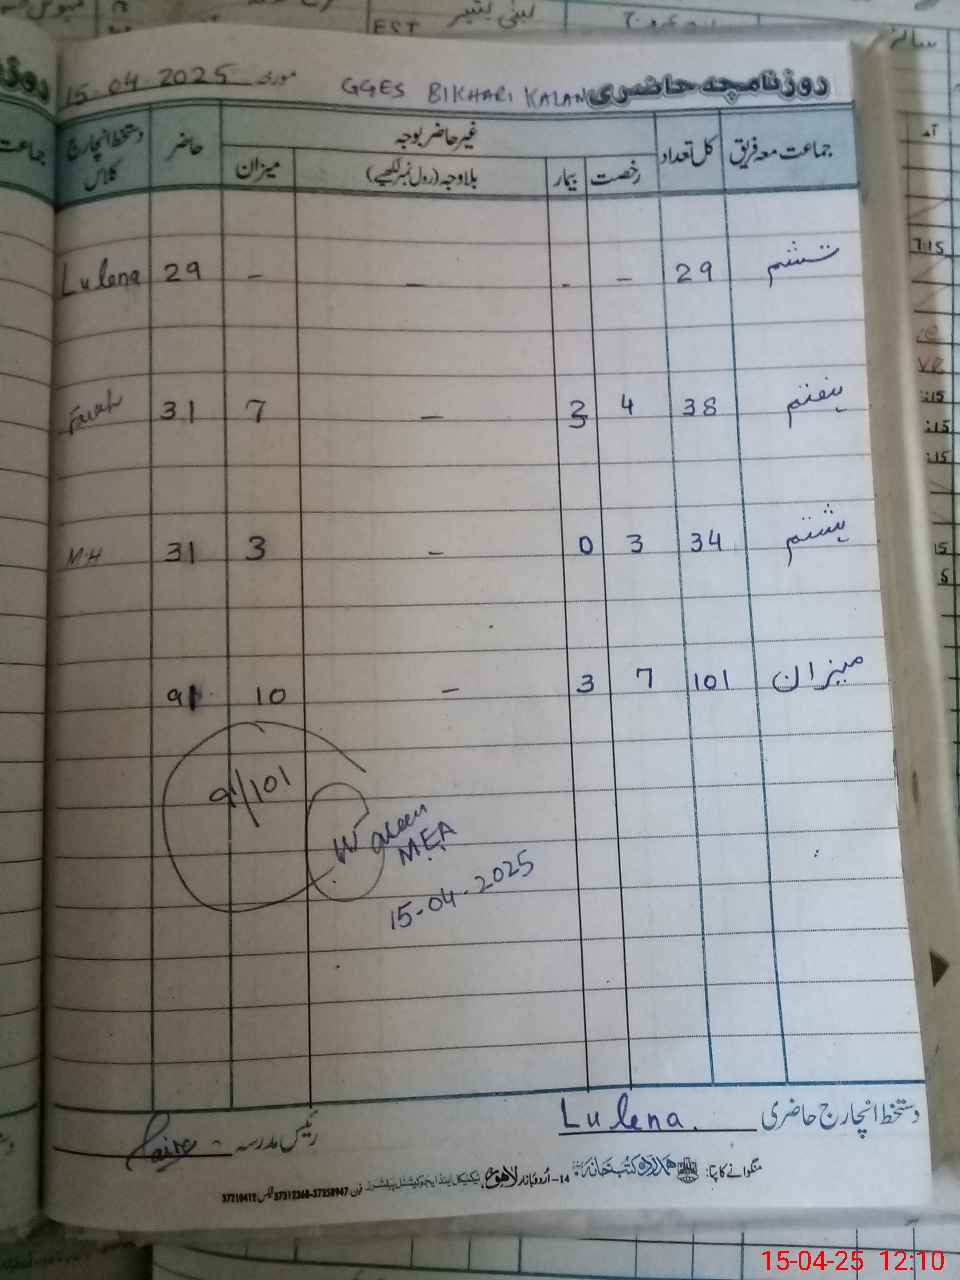 روزنامچہ حاضری GGES BIKHARI KALAN مورخہ 15-04-2025
جماعت معہ فریق کل تعداد غیر حاضر بوجہ حاضر دستخط انچارج کلاس
رخصت بیمار بلاوجہ (رول نمبر لکھیے) میزان
ششم 29 - - - - 29 Lulena
ہفتم 38 4 3 - 7 31 Farah
ہشتم 34 3 0 - 3 31 MH
میزان 101 7 3 - 10 91
91/101
M.E.A
15-04-2025
دستخط انچارج حاضری Lulena. رئیس مدرسہ
منگوانے کا پتا: ہمدرد کتب خانہ 14-اُردو بازار لاہور فون 37312368-37358947 فیکس 37210412
15-04-25 12:10